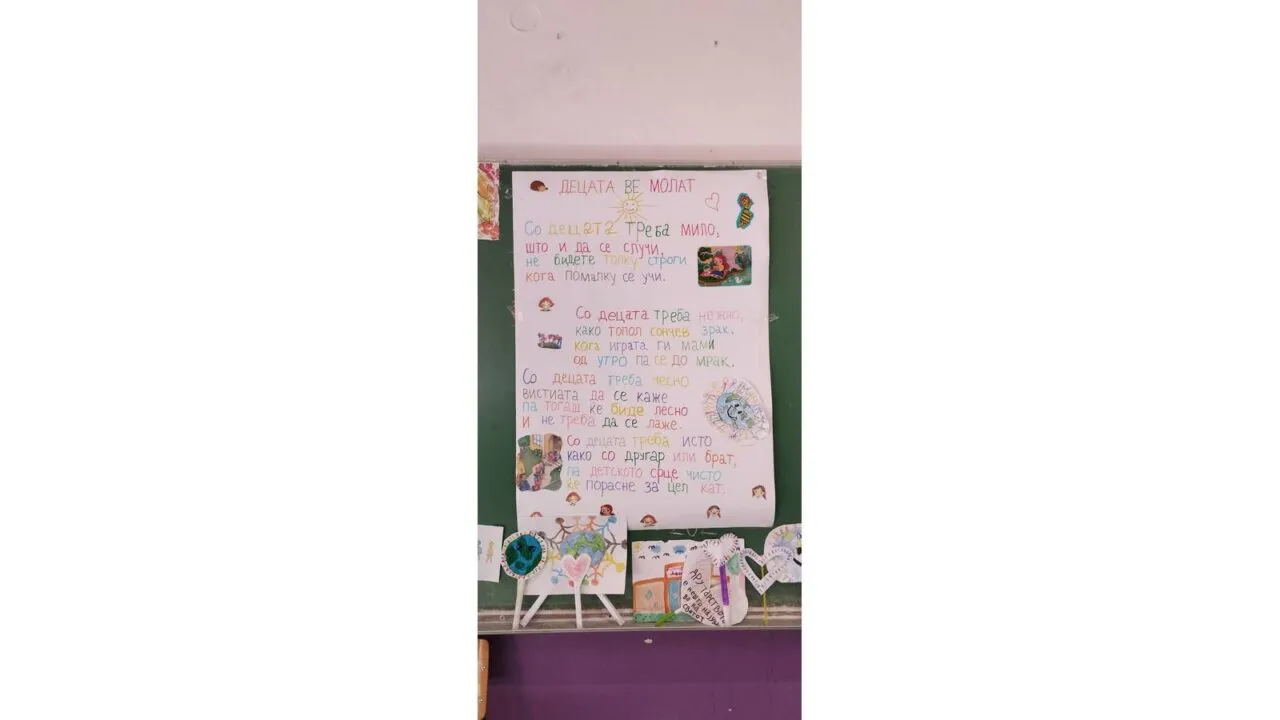 ДЕЦАТА ВЕ МОЛАТ
Со децата треба мило,
што и да се случи,
не бидете толку строги
кога помалку се учи.
Со децата треба нежно,
како топол сончев зрак,
кога играта ги мами
од утро па се до мрак.
Со децата треба чесно
вистиата да се каже
па тогаш ке биде лесно
и не треба да се лаже.
Со децата треба исто
како со другар или брат,
па детското срце чисто
ке порасне за цел кат.
ДРУГАРСТВОТО
е нешто најубаво
на
светот